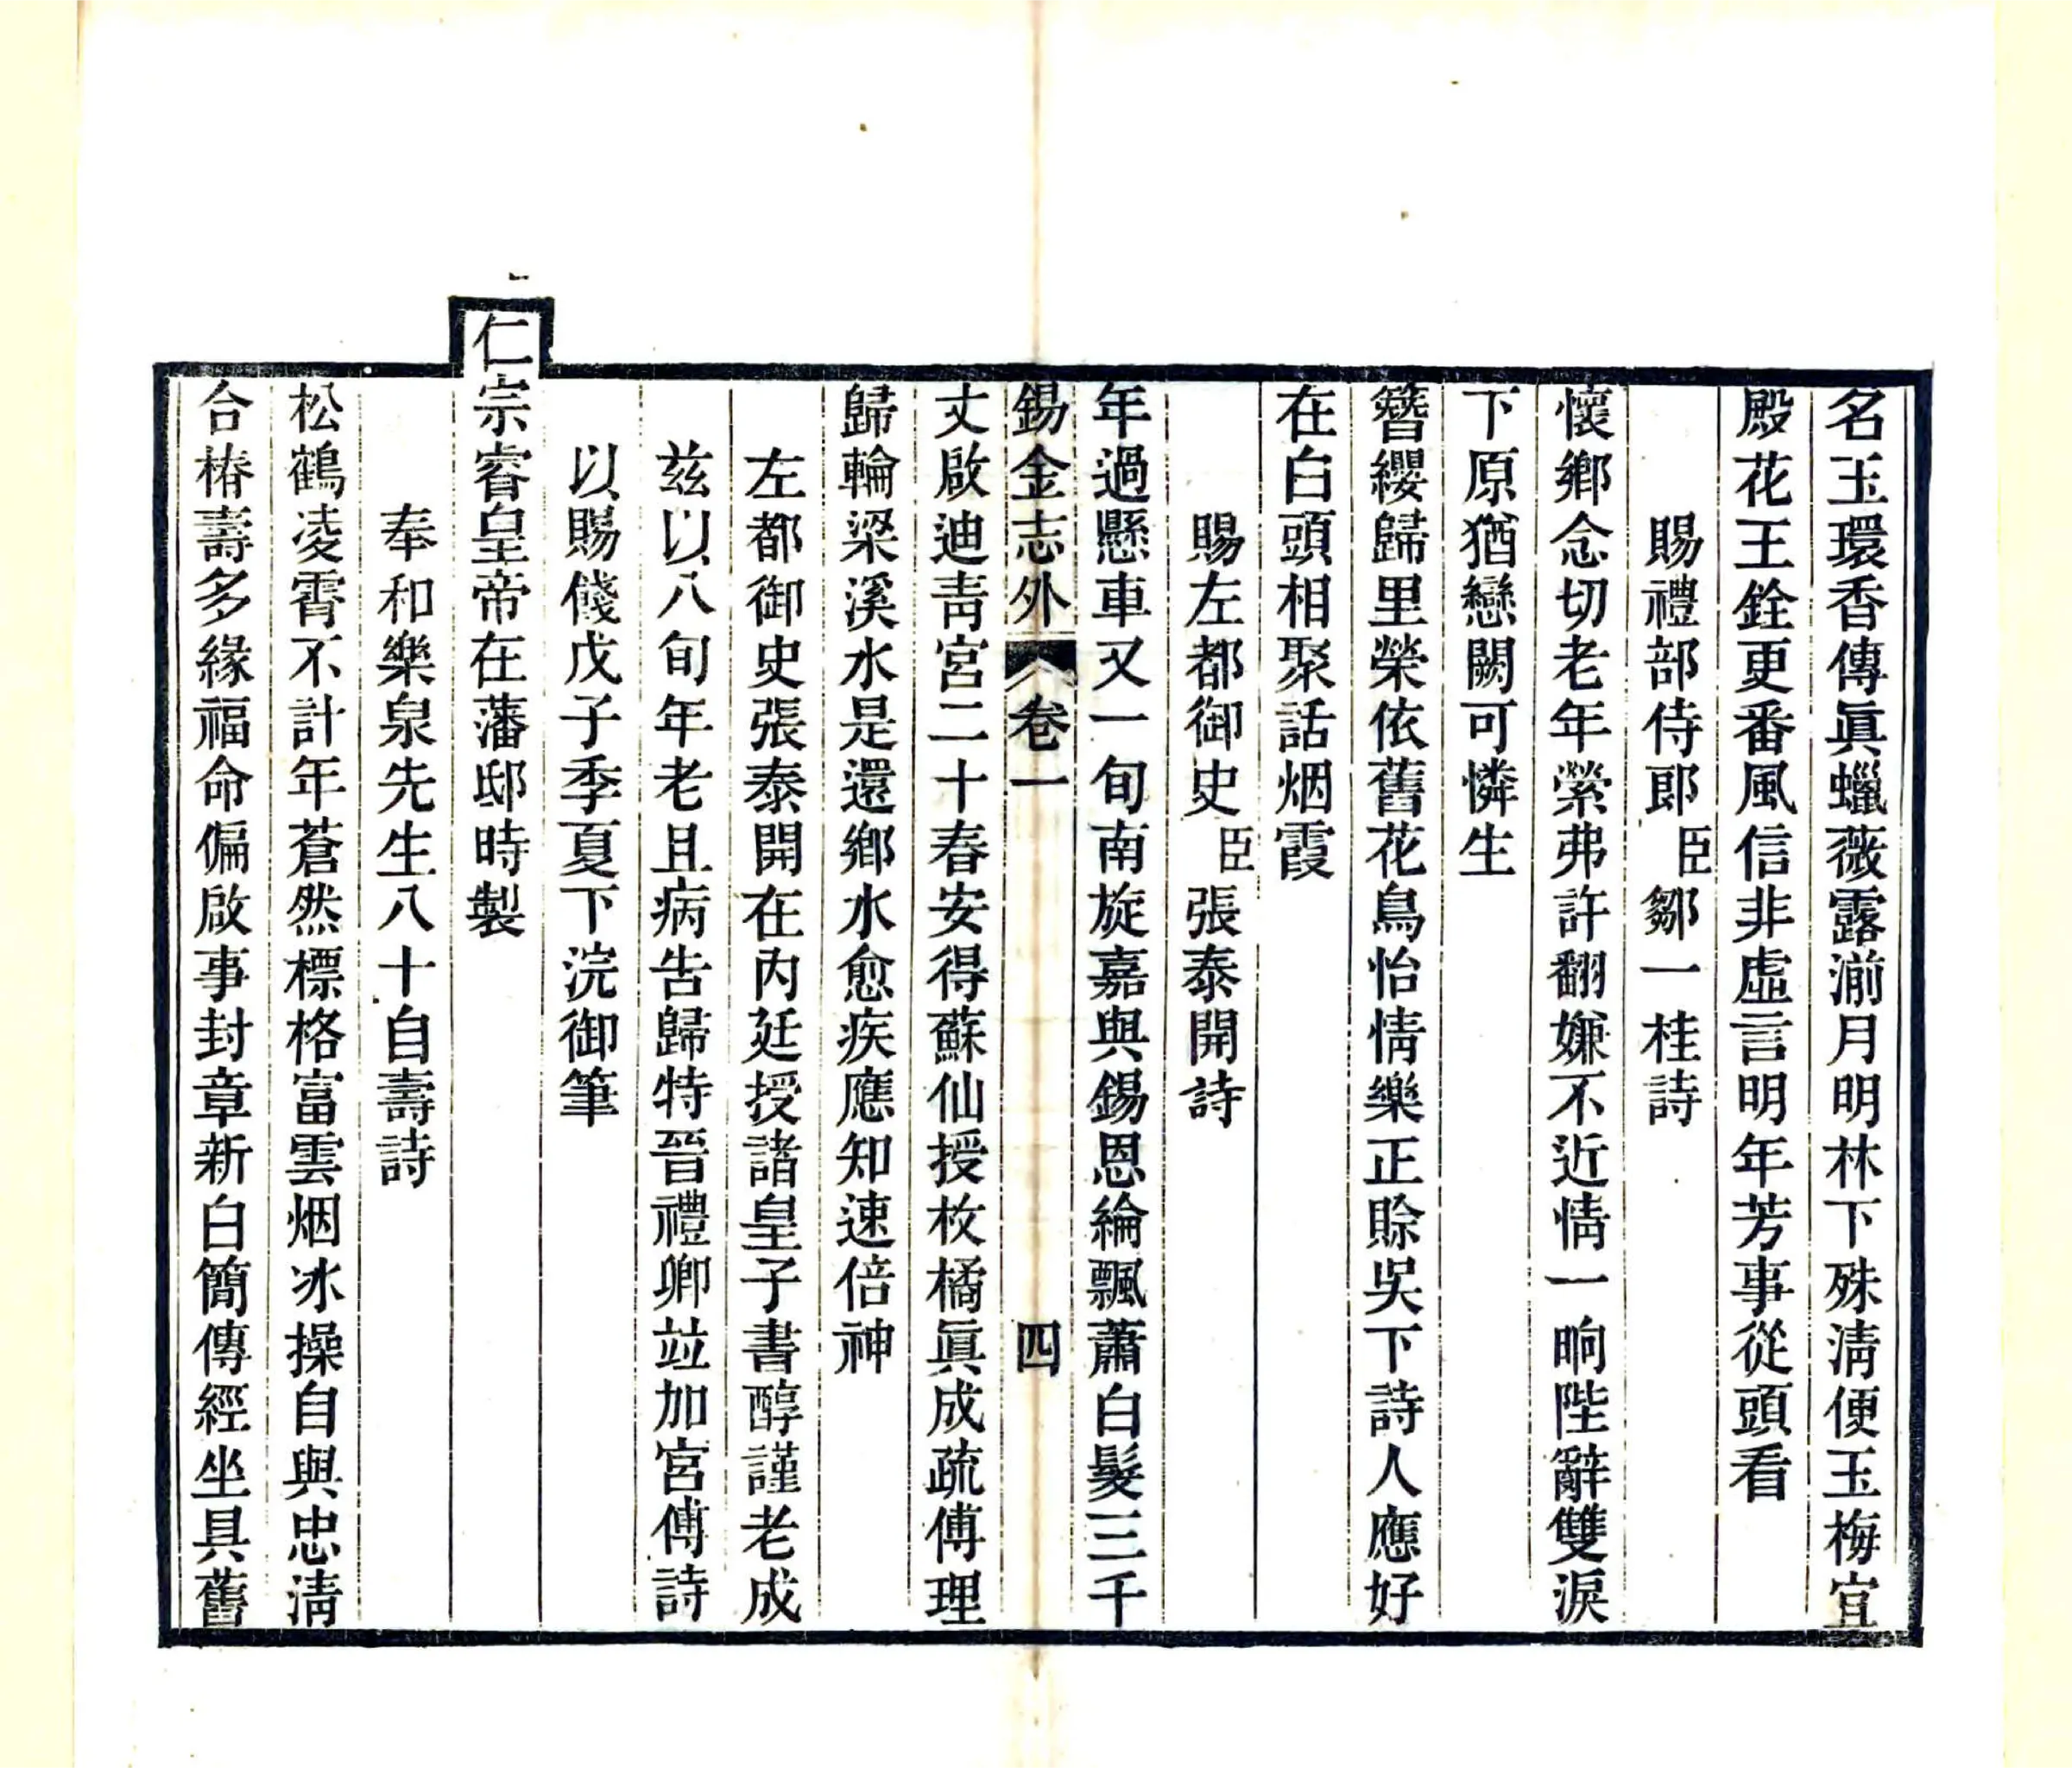 名玉環香傳眞蠟薇露湔月明林下殊淸便玉梅宜
殿花王銓更番風信非虛言明年芳事從頭看
賜禮部侍郎臣鄒一桂詩
懷鄉念切老年縈弗許翻嫌不近情一晌陛辭雙淚
下原猶戀闕可憐生
簪纓歸里榮依舊花鳥怡情樂正賒吳下詩人應好
在白頭相聚話烟霞
賜左都御史臣張泰開詩
年過懸車又一旬南旋嘉與錫恩綸飄蕭白髮三千
錫金志外 卷一 四
丈啟迪靑宮二十春安得蘇仙授枚橘眞成疏傅理
歸輪梁溪水是還鄉水愈疾應知速倍神
左都御史張泰開在內廷授諸皇子書醇謹老成
茲以八旬年老且病告歸特晉禮卿竝加宮傅詩
以賜餞戊子季夏下浣御筆
仁宗睿皇帝在藩邸時製
奉和樂泉先生八十自壽詩
松鶴凌霄不計年蒼然標格富雲烟冰操自與忠淸
合椿壽多緣福命偏啟事封章新白簡傳經坐具舊